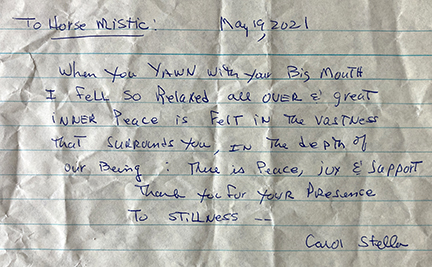 To Horse Mistic: May 19, 2021
When You YAWN With Your Big Mouth
I Fell So Relaxed all OVER & great
INNER Peace is Felt IN the VASTNESS
that SURROUNDS You, IN the depth of
our Being : There is Peace, joy & Support
Thank You For YOUR PRESENCE
TO STILLNESS --
Carol Stella